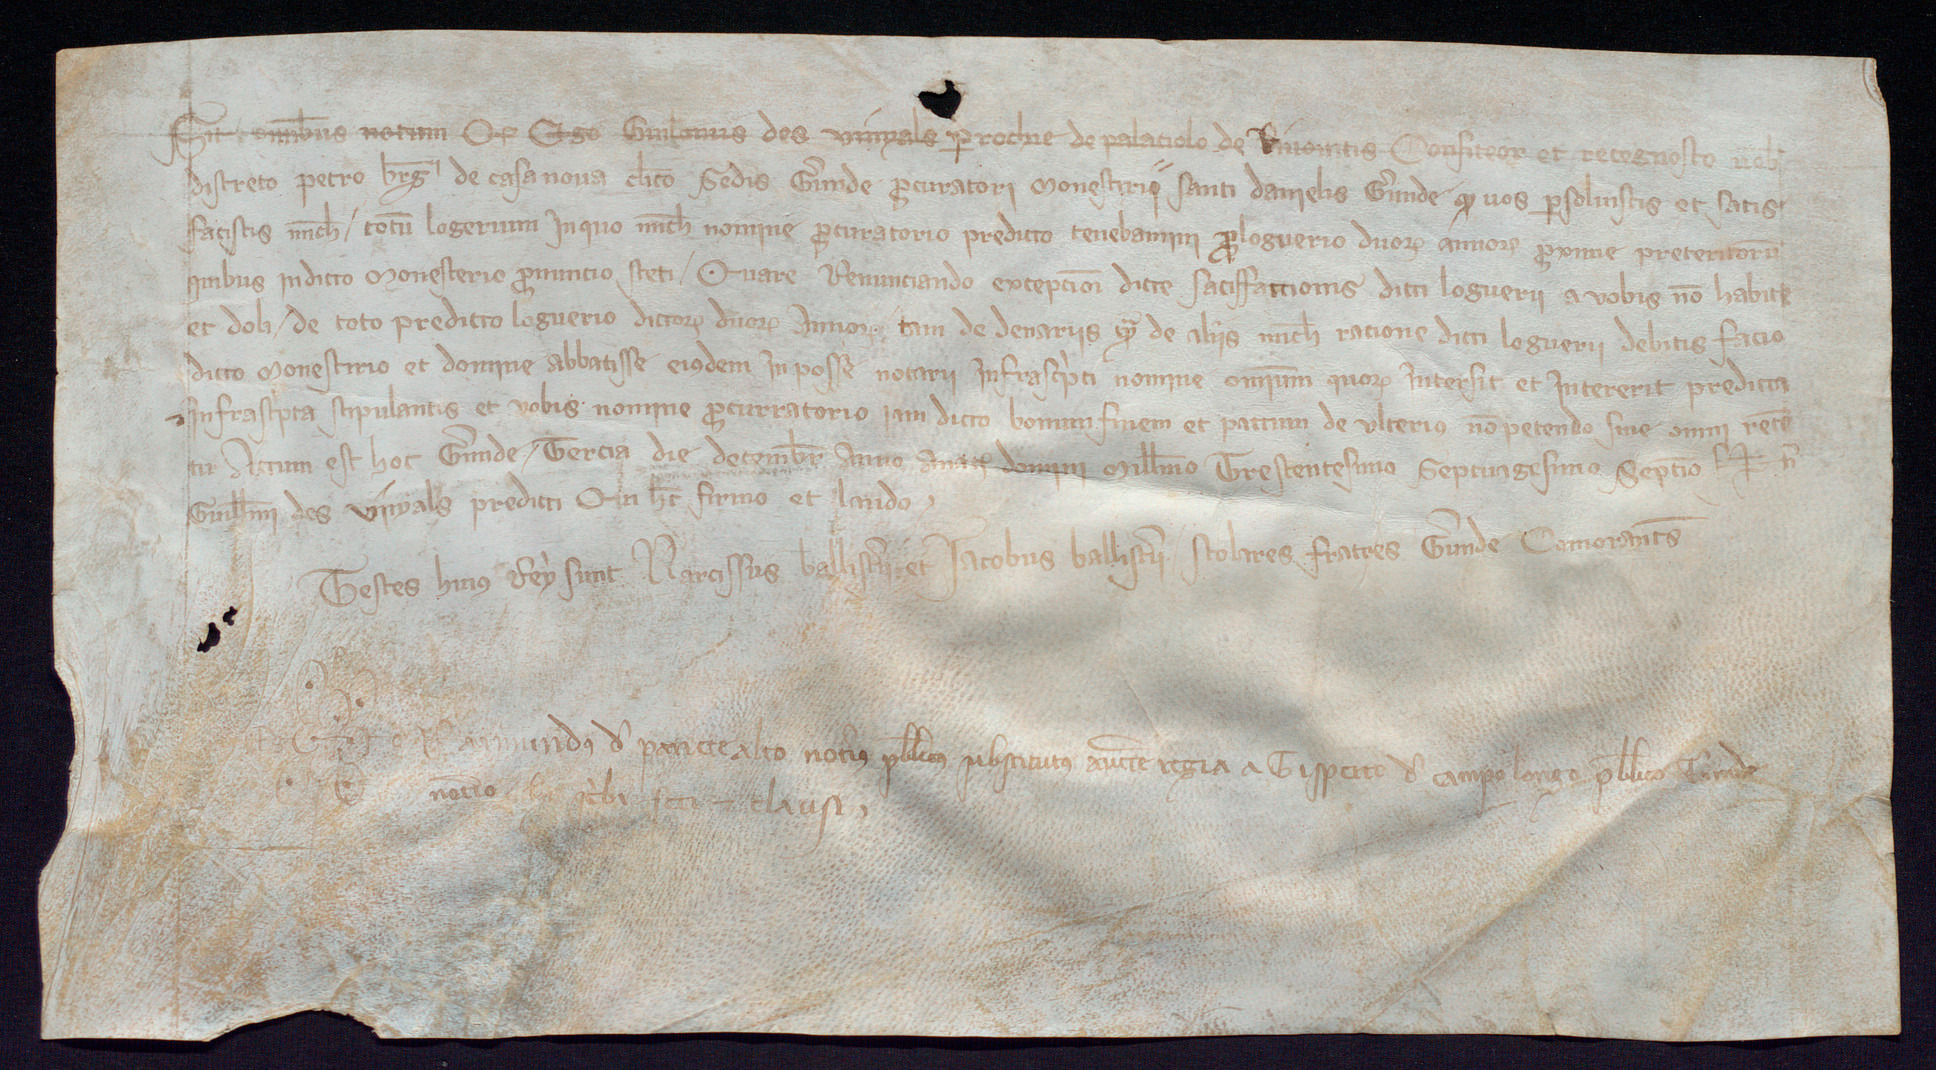 Sit omnibus notum Q Ego Guillmus des vinyals prochie de palaciolo de Rivomitis Confiteor et recognosco vob
discreto petro brg de casanova clico Sedis Grunde pcuratori Monestirii santi danielis Grunde q vos psolvistis et satis
facistis mich / totu logerium In quo mich nomine pcuratorio predicto tenebamini p loguerio duor annor pxime preteritoru
quibus in dicto Monesterio p nuncio steti / Quare Renunciando excepcioi dicte satisffaccionis dicti loguerii a vobis no habite
et doli / de toto predicto loguerio dictor duor Annor tam de denariis q de aliis mich racione dicti loguerii debitis facio
dicto Monestirio et domine abbatisse eiusdem In posse notarii Infrascripti nomine omnium quor Intersit et Intererit predicta
Infrascpta stipulantis et vobis nomine pcurratorio iam dicto bonum finem et pactum de ulterius no petendo sine omni rete
tu Actum est hoc Grunde / Tercia die decembr Anno domini Millmo Trescentesimo Septuagesimo Septio
Guillmi des vinyals predicti Qui hc firmo et laudo
Testes huius Rey sunt Narcissus ballistrii et Jacobus ballistrii scolares fratres Grunde Comorants
Raimundus d pariete alto notrius pblicus substitutus aucte regia a Gispto d campo longo pblico Grunde
notrio hc scbi feci clausi